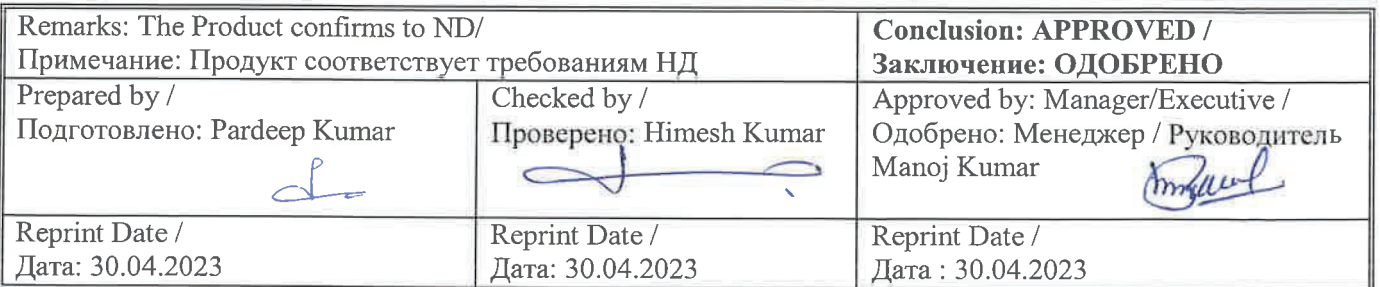 Remarks: The Product confirms to ND/
Примечание: Продукт соответствует требованиям НД
Conclusion: APPROVED /
Заключение: ОДОБРЕНО
Prepared by /
Подготовлено: Pardeep Kumar
Checked by /
Проверено: Himesh Kumar
Approved by: Manager/Executive /
Одобрено: Менеджер / Руководитель
Manoj Kumar
Reprint Date /
Дата: 30.04.2023
Reprint Date /
Дата: 30.04.2023
Reprint Date /
Дата : 30.04.2023